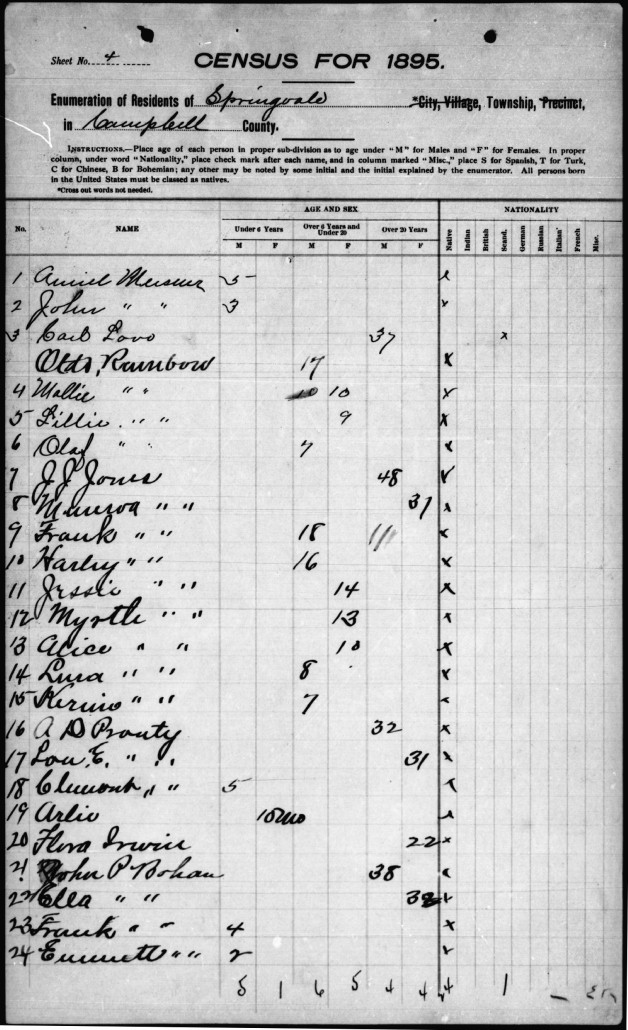 Sheet No. 4
CENSUS FOR 1895.
Enumeration of Residents of Springvale *City, Village, Township, Precinct,
in Campbell County.
INSTRUCTIONS.—Place age of each person in proper sub-division as to age under "M" for Males and "F" for Females. In proper
column, under word "Nationality," place check mark after each name, and in column marked "Misc.," place S for Spanish, T for Turk,
C for Chinese, B for Bohemian; any other may be noted by some initial and the initial explained by the enumerator. All persons born
in the United States must be classed as natives.
*Cross out words not needed.
AGE AND SEX NATIONALITY
No. NAME Under 6 Years Over 6 Years and Under 20 Over 20 Years Native Indian British Scand. German Russian Italian French Misc.
M F M F M F
1 5 x
2 John " " 3 x
3 Carl 37 x
Rainbow 17 x
4 Mollie " " 10 x
5 Lillie " " 9 x
6 Olaf " " 7 x
7 J J Jones 48 x
8 Minerva " " 31 x
9 Frank " " 18 x
10 Harley " " 16 x
11 Jessie " " 14 x
12 Myrtle " " 13 x
13 Alice " " 10 x
14 " " 8 x
15 " " 7 x
16 A D Prouty 32 x
17 Lou E. " " 31 x
18 Clemont " " 5 x
19 Arlie 10mo x
20 Flora Irwin 22 x
21 John P Bohan 38 x
22 Ella " " x
23 Frank " " 4 x
24 Emmett " " 2 x
5 1 6 5 4 4 1